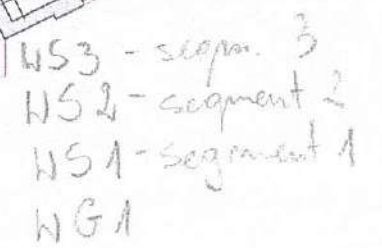 WS3 - segm. 3
WS2 - segment 2
WS1 - segment 1
WG1